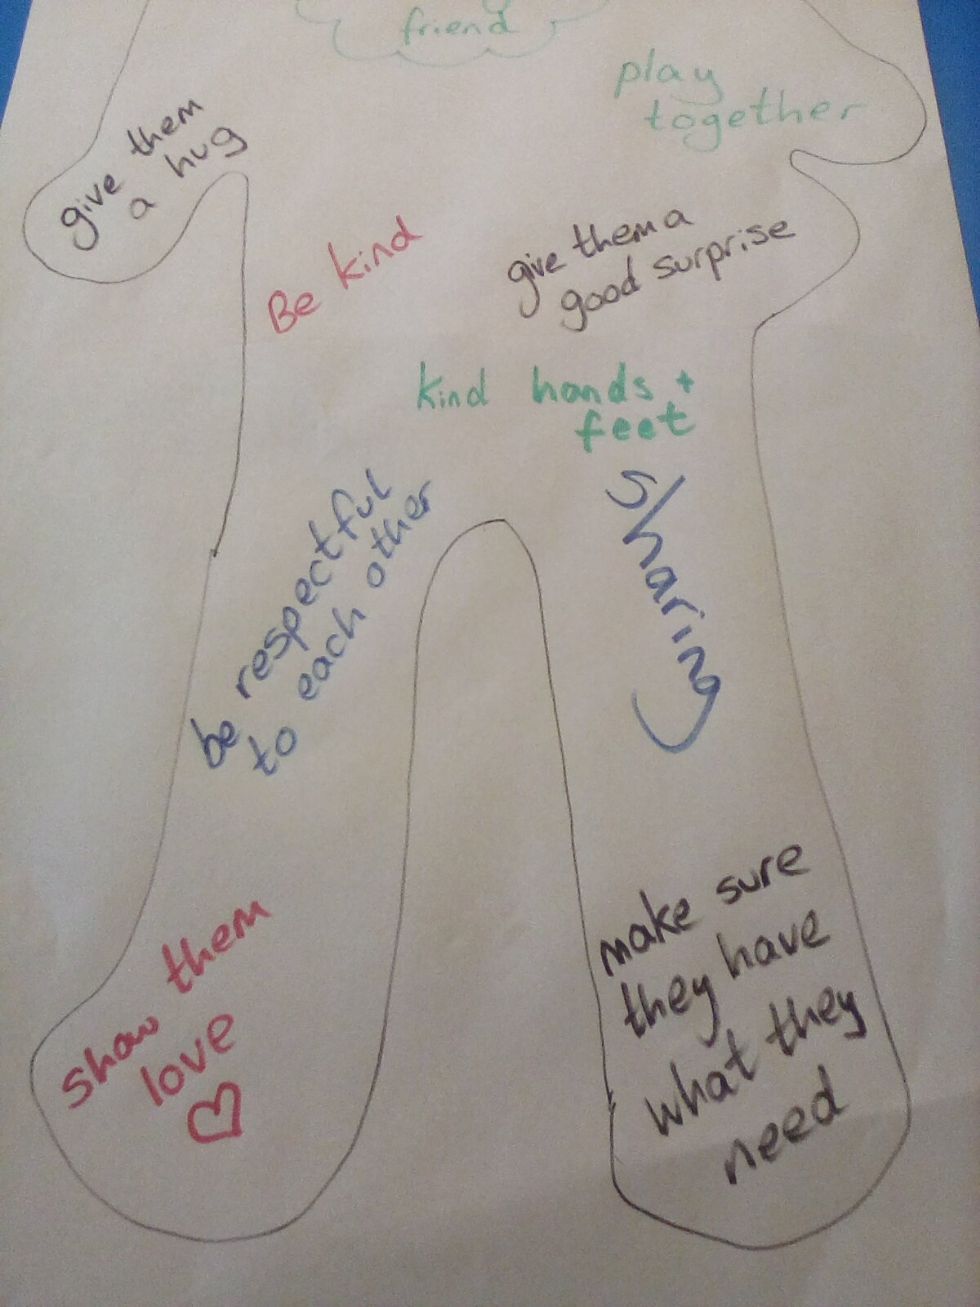 friend
play
together
give them
a hug
Be kind
give them a
good surprise
kind hands +
feet
be respectful
to each other
sharing
show them
love
make sure
they have
what they
need